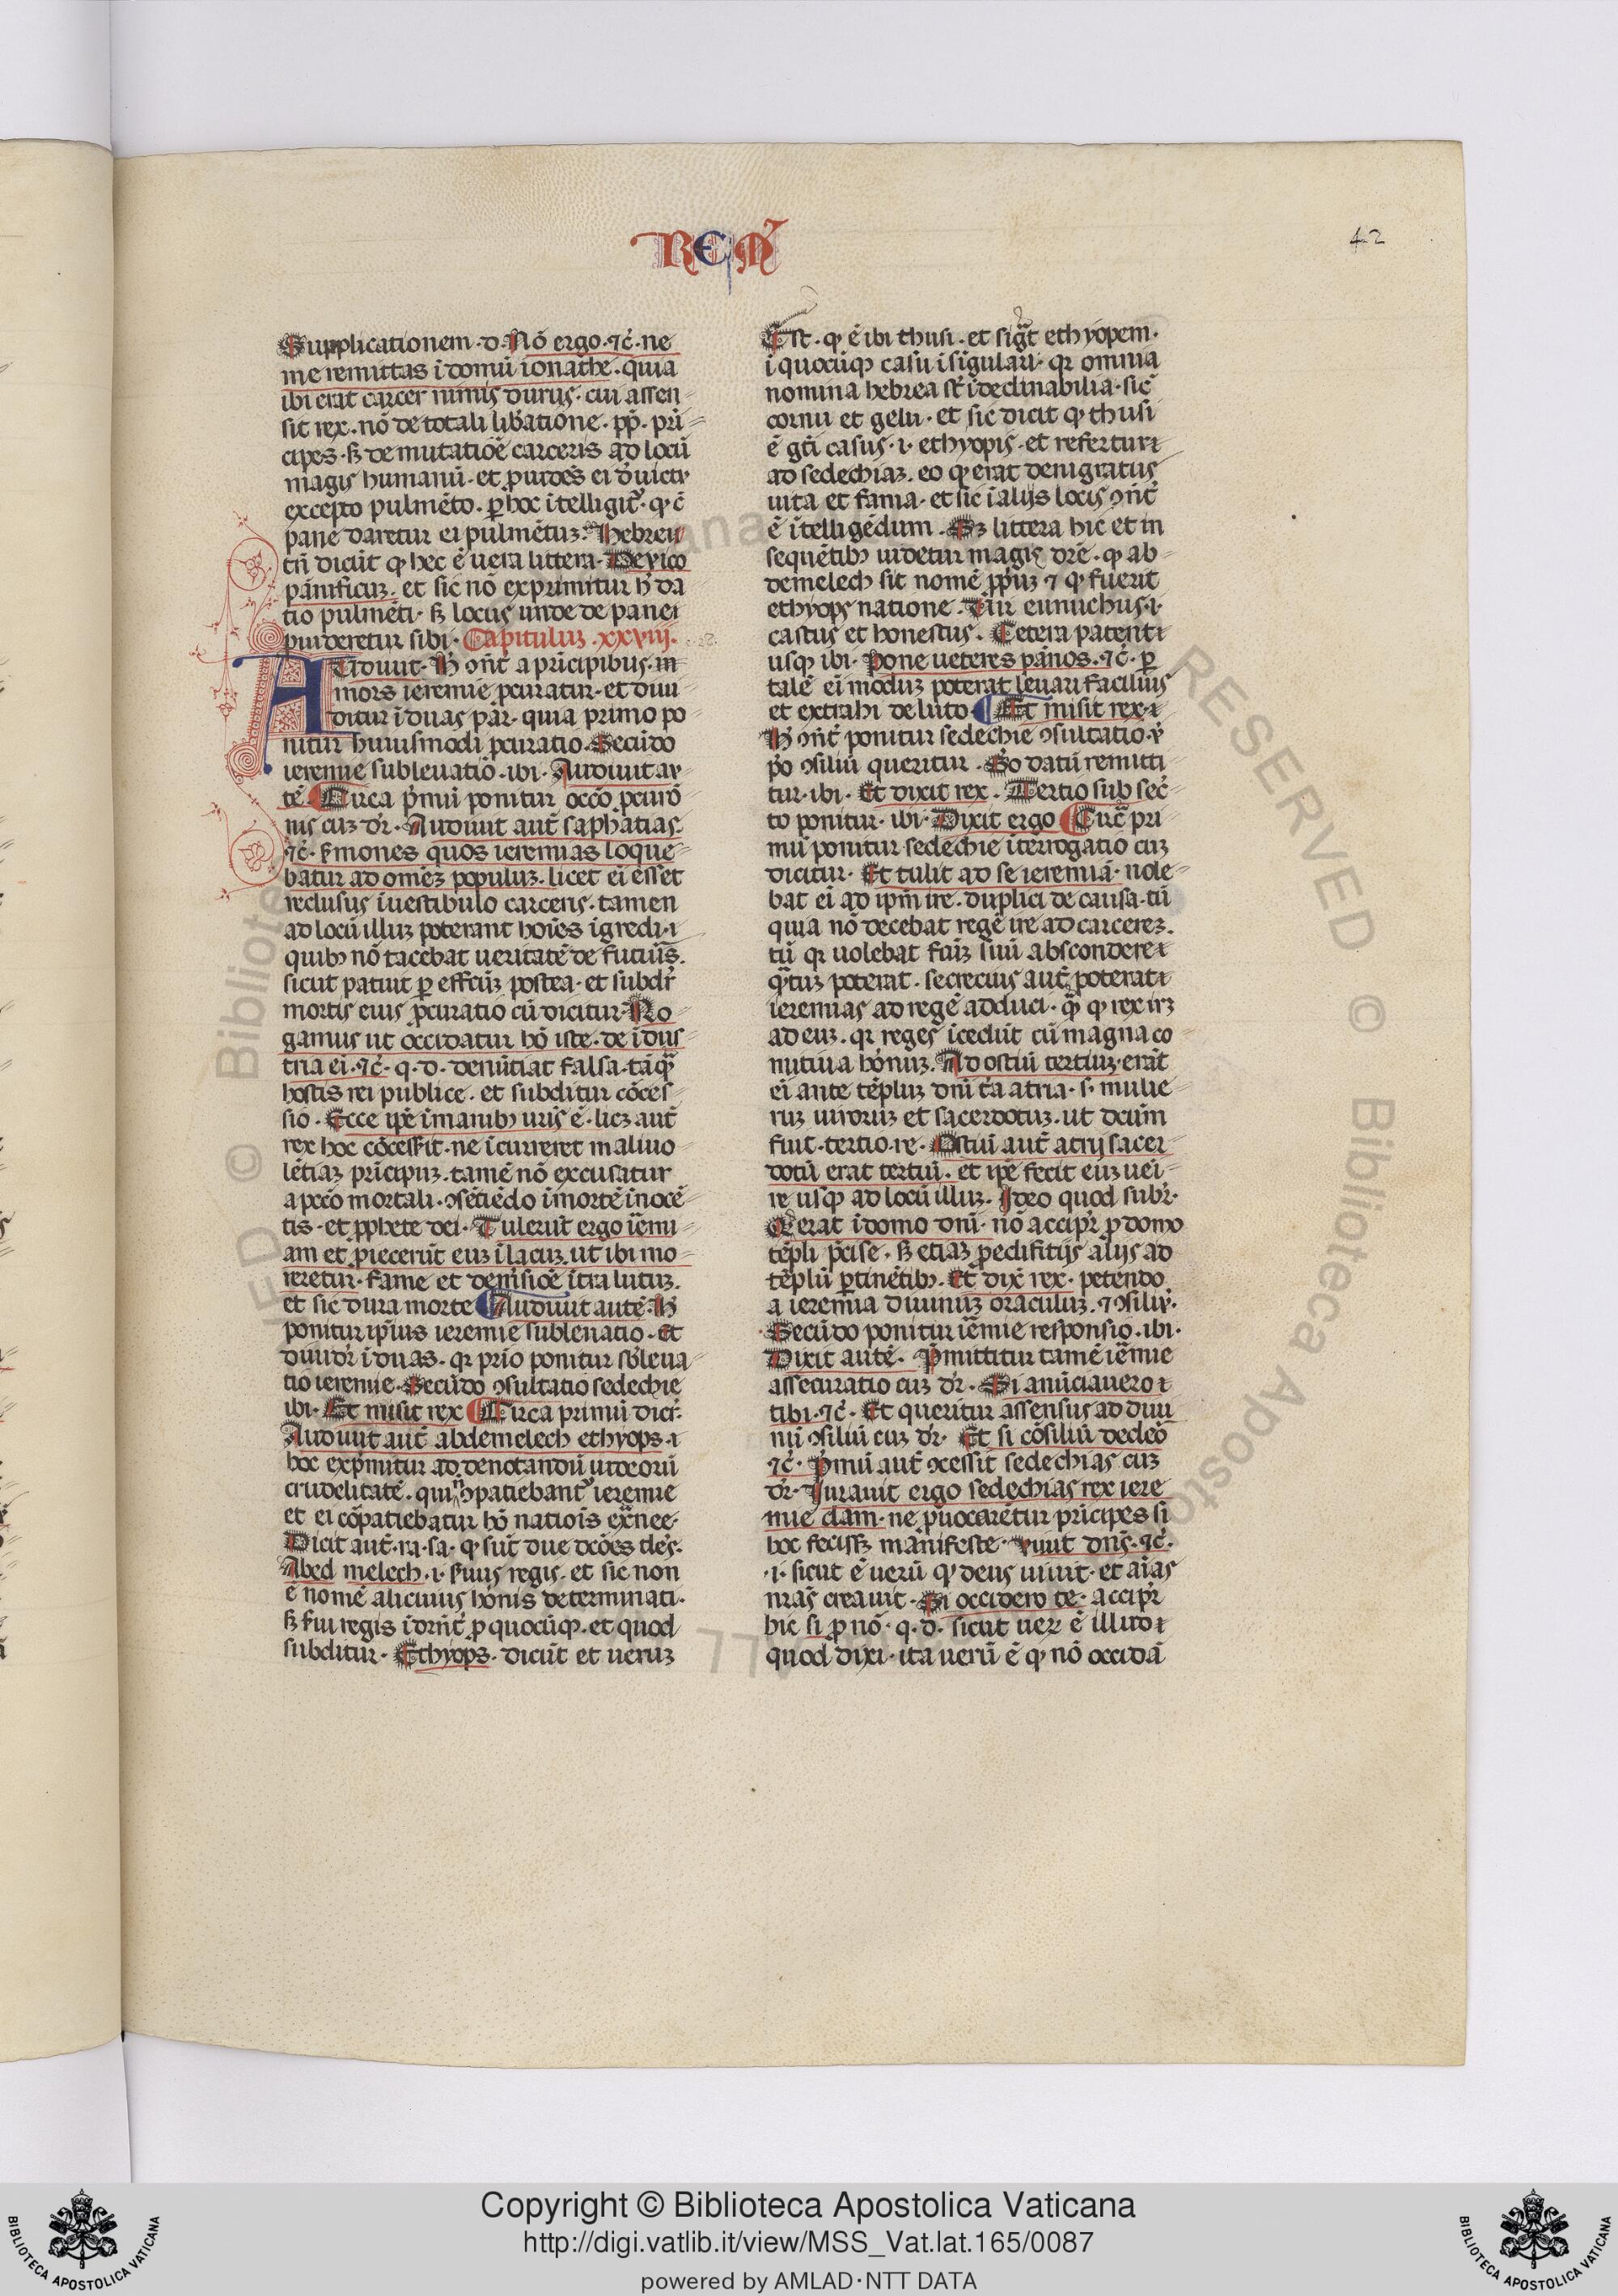 REM̃
42
Supplicationem .d. Nō ergo .⁊c̃. ne
me remittas ī domū ionathe. quia
ibi erat carcer nimis durus. cui assen
sit rex. nō de totali libatione. pp̃. pri
cipes. sꝫ de mutatiōe carceris ad locū
magis humanū. et
excepto pulmēto. ꝑ hoc ītelligit̃. qꝫ c̄
pane daretur ei pulmētuꝫ. Hebrei
tñ dicūt ꝙ hec ē uera littera. De uico
panificuꝫ. et sic nō exprimitur h̓ da
tio pulmēti. sꝫ locus unde de panei
puideretur sibi. Capituluꝫ .xxviij.
Audiuit. H̓ oñt̃ a pricipibus. in
mors ieremie ꝓcuratur. et diui
ditur ī duas par̃. quia primo po
nitur huiusmodi ꝓcuratio. Secūdo
ieremie subleuatio. ibi. Audiuit au
tē. Circa pͥmū ponitur occō ꝓcurō
nis cuꝫ dr̃. Audiuit aut̃ saphatias.
⁊c̃. s̃mones quos ieremias loque
batur ad omēꝫ populuꝫ. licet ei esset
reclusus ī uestibulo carceris. tamen
ad locū illuꝫ poterant hoīes īgredi. ı
quibꝫ nō tacebat ueritatē de futuris.
sicut patuit ꝑ effcūꝫ postea. et subdr̃
mortis eius ꝓcuratio cū dicitur. Ro
gamus ut occidatur hō iste. de īdus
tria ei. ⁊c̃. q. d. denūtiat falsa. tāq̃
hostis rei publice. et subditur cōces
sio. Ecce ip̃e ī manibꝫ uris ē. licꝫ aut̃
rex hoc cōcesserit. ne īcurreret maliuo
lētiaꝫ principuꝫ. tamē nō excusatur
a pccō mortali. ꝯsētiēdo ī mortē īnocē
tis. et ꝓphete dei. Tulerūt ergo iēmi
am et ꝓiecerūt euꝫ ī lacuꝫ. ut ibi mo
reretur. fame et demͥsiōe ītra lutuꝫ.
et sic dura morte Audiuit autē. H̓
ponitur ipīus ieremie subleuatio. Et
diuidr̃ ī duas. qr prīo ponitur sb̓leua
tio ieremie. Secūdo ꝯsultatio sedechie
ibi. Et misit rex Circa primū dicr̃.
Audiuit aut̃ abdemelech ethyops. ı
hoc expͥmitur ad denotandū iudeorū
crudelitatē. qui nō ꝯpatiebant̃ ieremie
et ei cōpatiebatur hō natiōis exnee.
Dicit aut̃. ra. sa. ꝙ sūt due dcōes
Abed melech .i. s̃uus regis. et sic non
ē nomē alicuius hōnis determinati.
sꝫ s̃ui regis īdr̃nt̃ ꝓ quocūqꝫ. et quod
subditur. Ethyops. dicūt et ueruꝫ
Est. ꝙ ē ibi thusi. et sigt̃ ethyopem.
ī quocūqꝫ casu ī sīgulari. qr omnia
nomina hebrea sūt īdeclinabilia. sic̃
cornu et gelu. et sic dicit ꝙ thusi
ē gtī casus. i. ethyopis. et referturı
ad sedechiaꝫ. eo ꝙ erat denigratus
uita et fama. et sic ī alijs locis ꝯñt̃
ē ītelligēdum. Sꝫ littera hic et in
sequētibꝫ uidetur magis drē. ꝙ ab
demelech sit nomē ppͥuꝫ ⁊ ꝙ fuerit
ethyops natione. Uir eunuchus. i.
castus et honestus. Cetera patentı
usqꝫ ibi. Pone ueteres pānos. ⁊c̃. ꝑ
talē ei moduꝫ poterat leuari facilius
et extrahi de luto Et misit rex. ı
H̓ oñt̃ ponitur sedechie ꝯsultatio. ⁊
pͦo ꝯsiliū queritur. Sͦo datū remitti
tur. ibi. Et dixit rex. Tertio sub sec̃
to ponitur. ibi. Dixit ergo Circ̃ pri
mū ponitur sedechie īterrogatio cuꝫ
dicitur. Et tulit ad se ieremiā. nole
bat ei ad ip̄m ire. duplici de causa. tū
quia nō decebat regē ire ad carcereꝫ.
tū qr uolebat fcūꝫ suū abscondereı
q̃tuꝫ poterat. secrecius aut̃ poteratı
ieremias ad regē adduci. q̃ ꝙ rex irꝫ
ad euꝫ. qr reges īcedūt cū magna co
mitiua hōnuꝫ. Ad ostiū tertiuꝫ. erāt
ei ante tēpluꝫ dn̄i tria atria. s. mulie
ruꝫ uiroruꝫ et sacerdotuꝫ. ut dcūm
fuit. tertio. re. Ostiū aut̃ atrij sacer
dotū erat tertiū. et ip̃e fecit euꝫ uēi
re usqꝫ ad locū illuꝫ. Ideo quod subr̃.
Qͥ erat ī domo dn̄i. nō accipͥr ꝓ domo
tēpli pͥcise. sꝫ etiaꝫ ꝓ edifitijs alijs ad
tēplū ꝑtinētibꝫ. Et dixͥ rex. petendo
a ieremia diuinuꝫ oraculuꝫ. ⁊ ꝯsiliꝫ.
Secūdo ponitur iēmie responsio. ibi.
Dixit autē. Pͥmittitur tamē iēmie
assecuratio cuꝫ dr̃. Si anūciaueroı
tibi. ⁊c̃. Et queritur assensus ad diui
nū ꝯsiliū cuꝫ dr̃. Et si cōsiliū dedeō
⁊c̃. Pͥmū aut̃ ꝯcessit sedechias cuꝫ
dr̃. Iurauit ergo sedechias rex iere
mie clam. ne ꝓuocarētur pͥncipes si
hoc fecissꝫ manifeste. uiuit dn̄s. ⁊c̃.
.i. sicut ē uerū ꝙ deus uiuit. et aīas
nr̄as creauit. Si occidero te. accipͥr
hic si ꝓ nō. q. d. sicut uerꝫ ē illudı
quod dixi. ita uerū ē ꝙ nō occidā
Copyright © Biblioteca Apostolica Vaticana
http://digi.vatlib.it/view/MSS_Vat.lat.165/0087
powered by AMLAD·NTT DATA
BIBLIOTECA APOSTOLICA VATICANA
BIBLIOTECA APOSTOLICA VATICANA